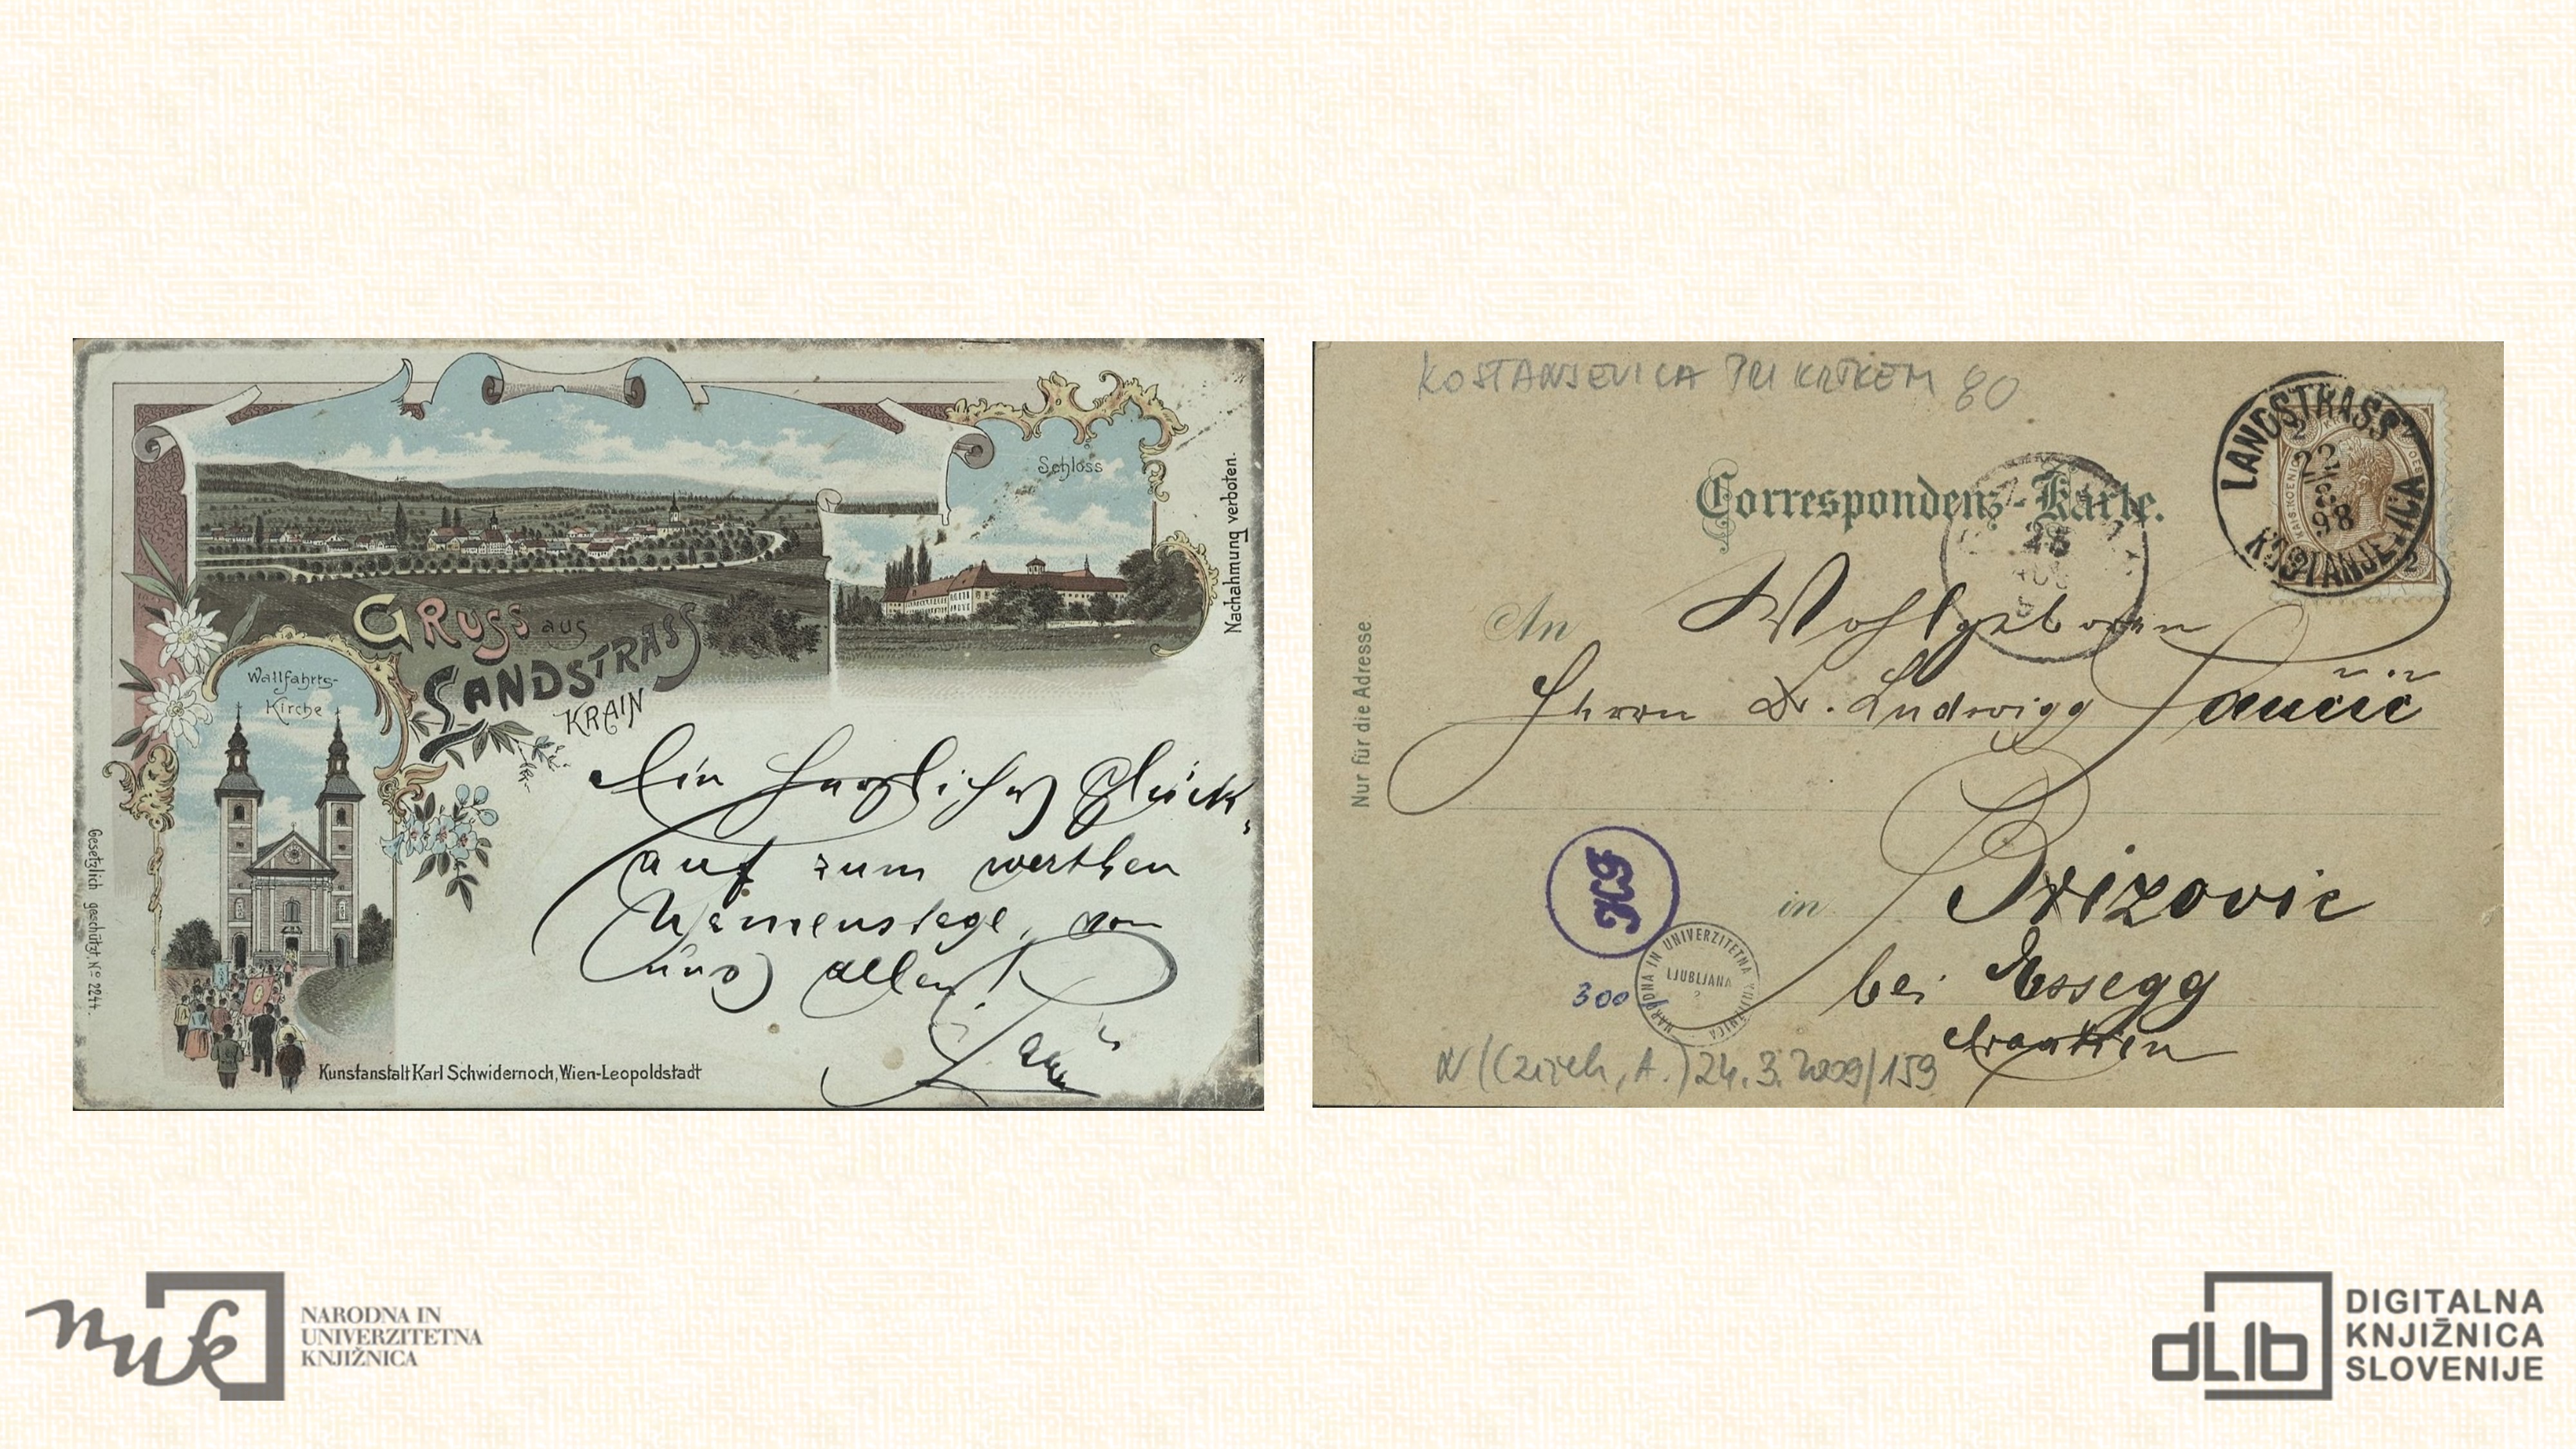 Schloss
Nachahmung verboten.
GRUSS aus
LANDSTRASS
KRAIN
Wallfahrts-
Kirche
Ein herzliches Glück-
auf zum werthen
Namenstage, von
uns allen!
Gesetzlich geschützt. Nº 2244.
Kunstanstalt Karl Schwidernoch, Wien-Leopoldstadt
KOSTANJEVICA PRI KRKEM 80
LANDSTRASS
22
8
98
KOSTANJEVICA
2 2
28
Correspondenz-Karte.
An Wohlgeboren
Herrn Dr. Ludwigg
Nur für die Adresse
in
bei Essegg
Kroatien
HG
300
NARODNA IN UNIVERZITETNA KNJIŽNICA
LJUBLJANA
24. 3. 2009/159
nuk
NARODNA IN
UNIVERZITETNA
KNJIŽNICA
dLib
DIGITALNA
KNJIŽNICA
SLOVENIJE